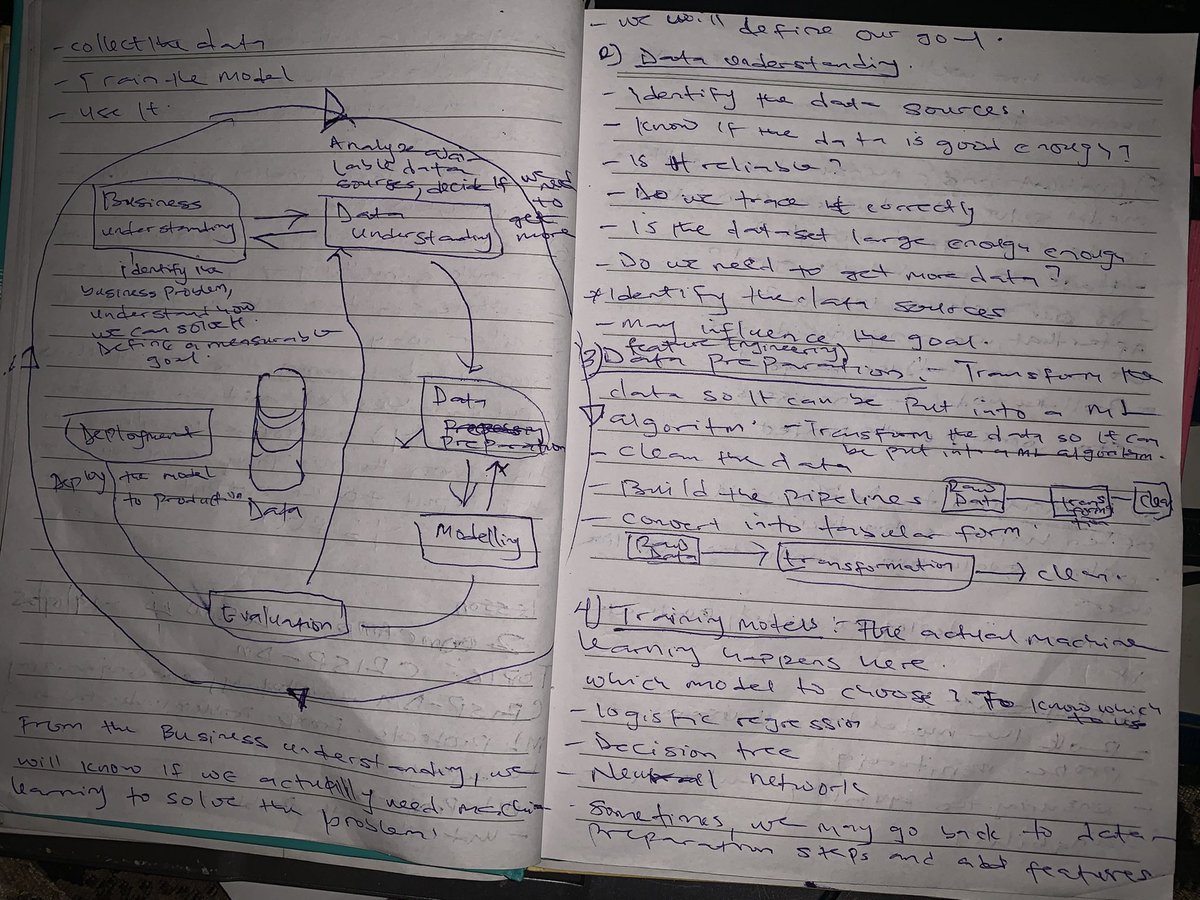 - collect the data
- Train the Model
- use It.
Analyze avai-
lable data
sources, decide If we need
to
get
more
Business
understanding
Data
understanding
identify the
business problem,
understand how
we can solve it.
Define a measurable
goal.
Data
Preparation
Deployment
Deploy the model
to production
Data
Modelling
Evaluation
From the Business understanding, we
will know if we actually need machine
learning to solve the problem.
- we will define our goal.
2) Data understanding.
- Identify the data sources.
- Know if the data is good enough?
- Is it reliable?
- Do we trace it correctly
- is the dataset large enough enough
- Do we need to get more data?
* Identify the data sources
- May influence the goal.
feature Engineering
3) Data preparation :- Transform the
data so It can be put into a ML
algoritm. - Transform the data so It can
be put into a ML algorithm.
- Clean the data
- Build the pipelines Raw Data transformation clea
- convert into tabular form.
Raw Data transformation clean.
4) Training models: The actual machine
learning happens here.
which model to choose? To know which
to use
- logistic regression
- Decision tree
- Neural network
- Sometimes, we may go back to data
preparation steps and add features